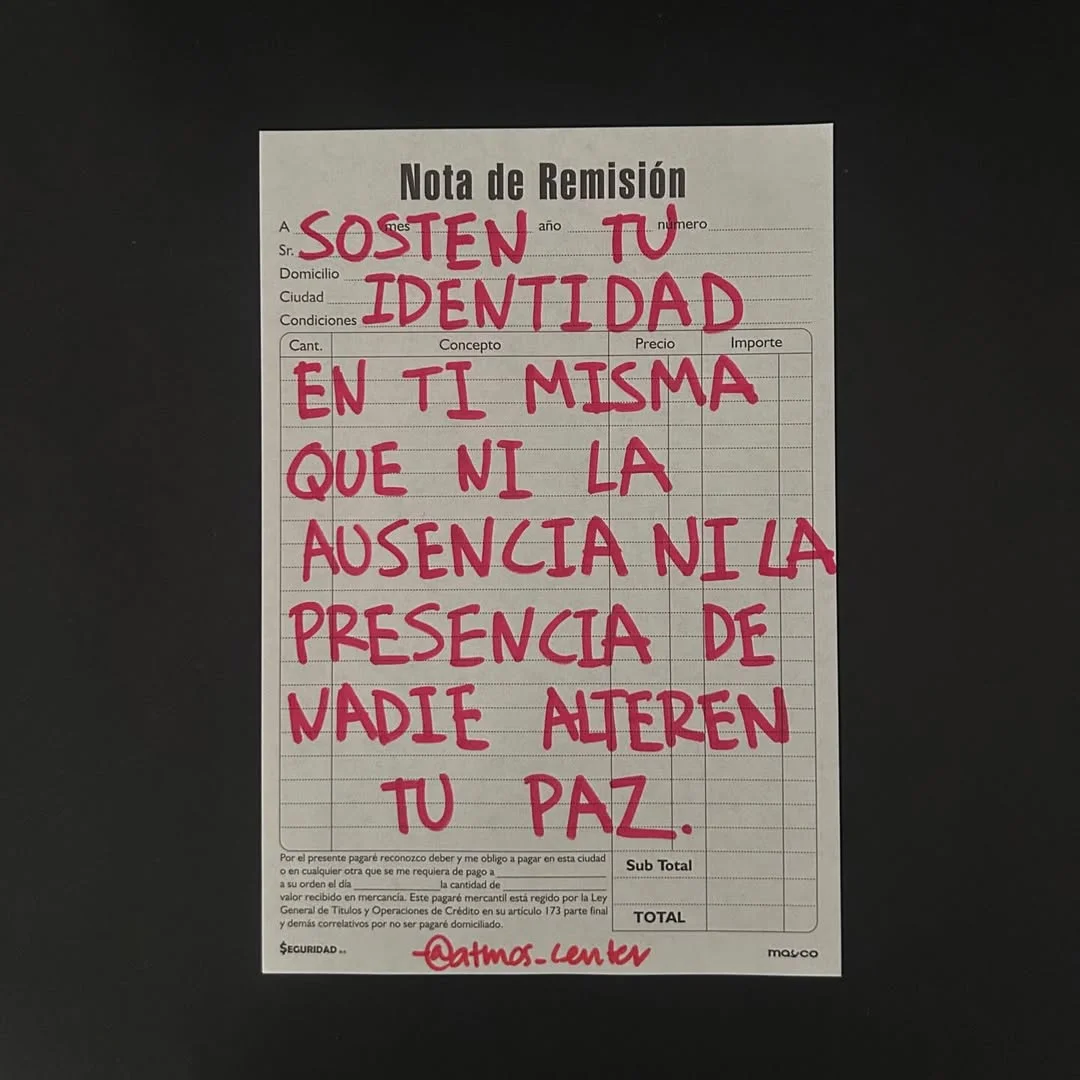 Nota de Remisión
A mes año número
SOSTEN TU
Sr.
Domicilio
Ciudad
IDENTIDAD
Condiciones
Cant. Concepto Precio Importe
EN TI MISMA
QUE NI LA
AUSENCIA NI LA
PRESENCIA DE
NADIE ALTEREN
TU PAZ.
Por el presente pagaré reconozco deber y me obligo a pagar en esta ciudad
o en cualquier otra que se me requiera de pago a
a su orden el día la cantidad de
valor recibido en mercancía. Este pagaré mercantil está regido por la Ley
General de Titulos y Operaciones de Crédito en su artículo 173 parte final
y demás correlativos por no ser pagaré domiciliado.
Sub Total
TOTAL
$EGURIDAD
@atmos_center